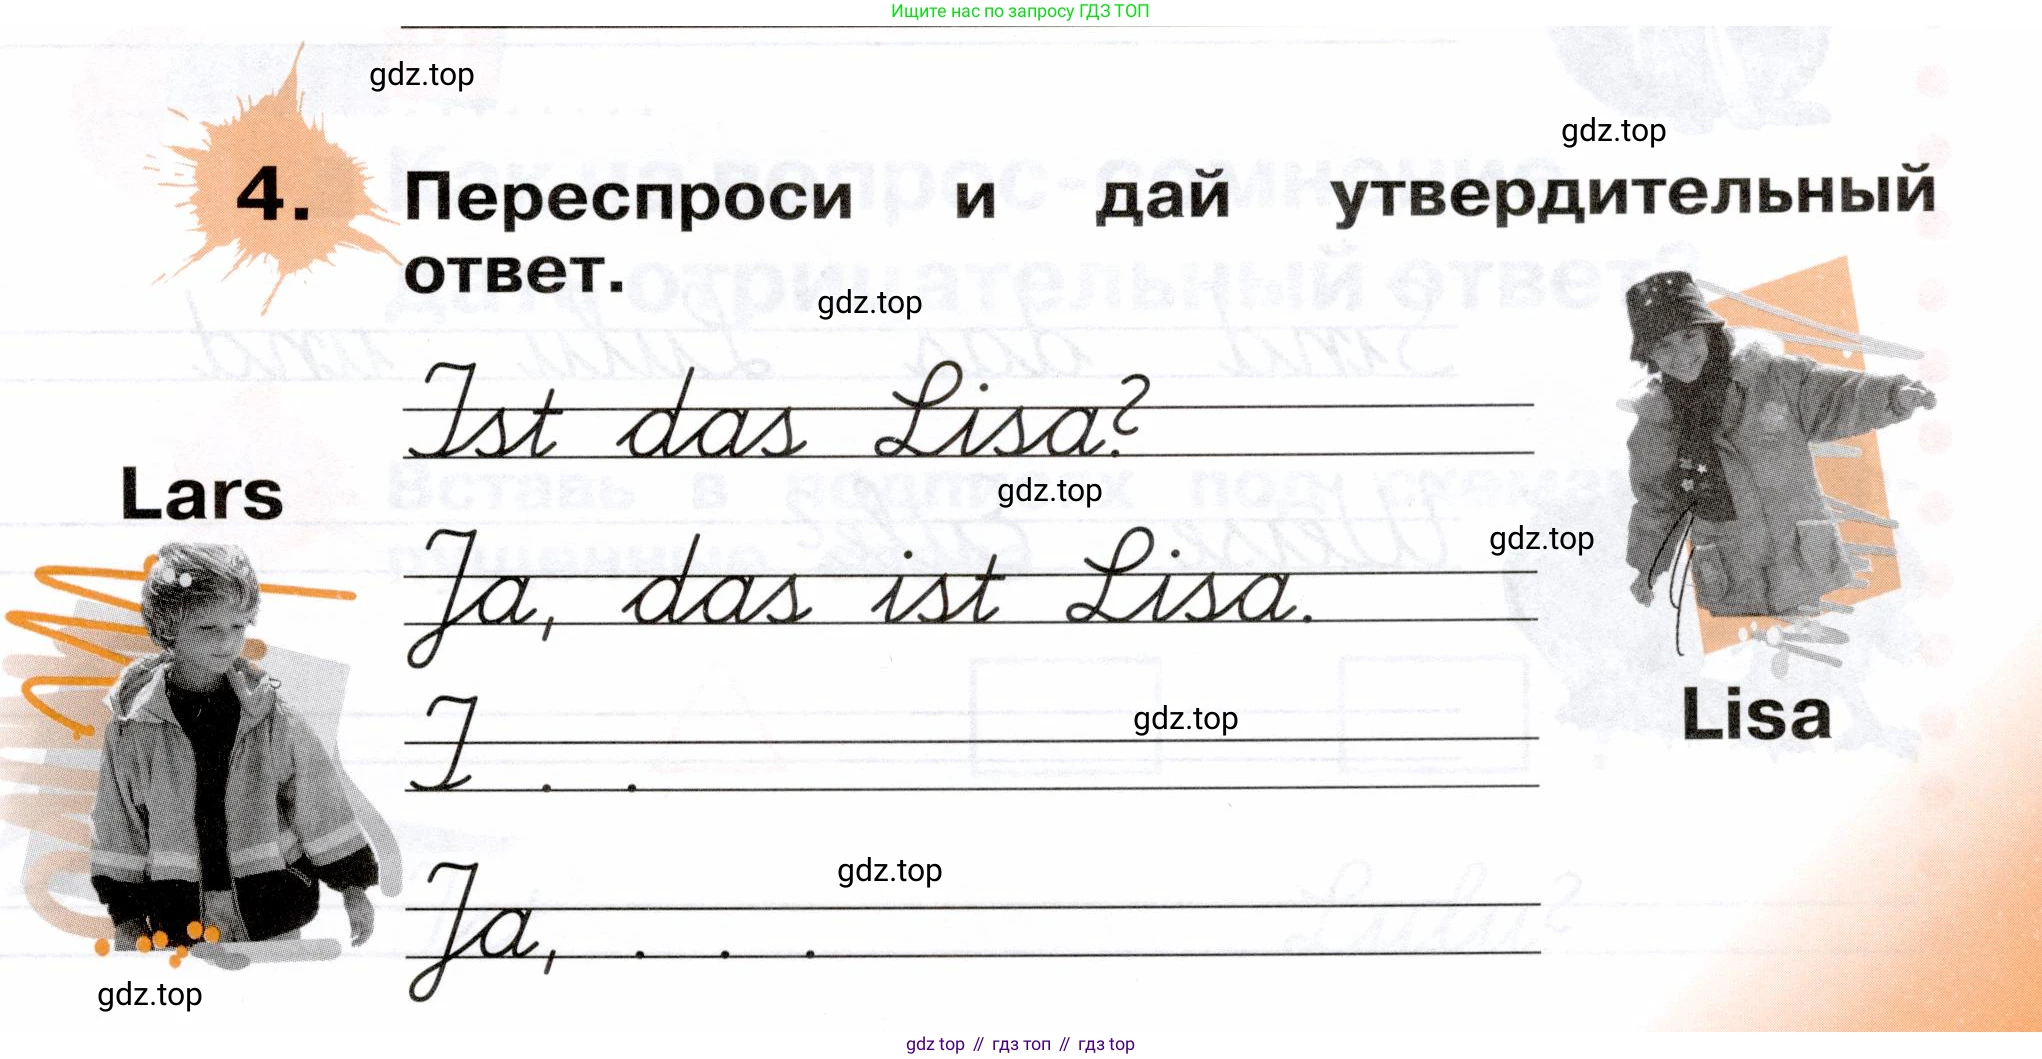 Ищите нас по запросу ГДЗ ТОП
gdz.top
gdz.top
4. Переспроси и дай утвердительный
ответ.
gdz.top
Ist das Lisa?
Lars
gdz.top
gdz.top
Ja, das ist Lisa.
Lisa
I . .
gdz.top
gdz.top
Ja, . . .
gdz.top
gdz top // гдз топ // gdz top